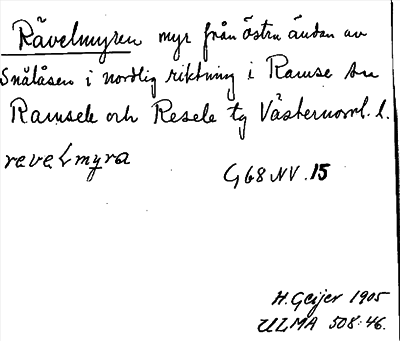 Rävelmyren myr från östra ändan av
Snålåsen i nordlig riktning i Ramse sn
Ramsele och Resele tg Västernorrl. l.
revelmyra
G68 NV. 15
H. Geijer 1905
ULMA 508:46.